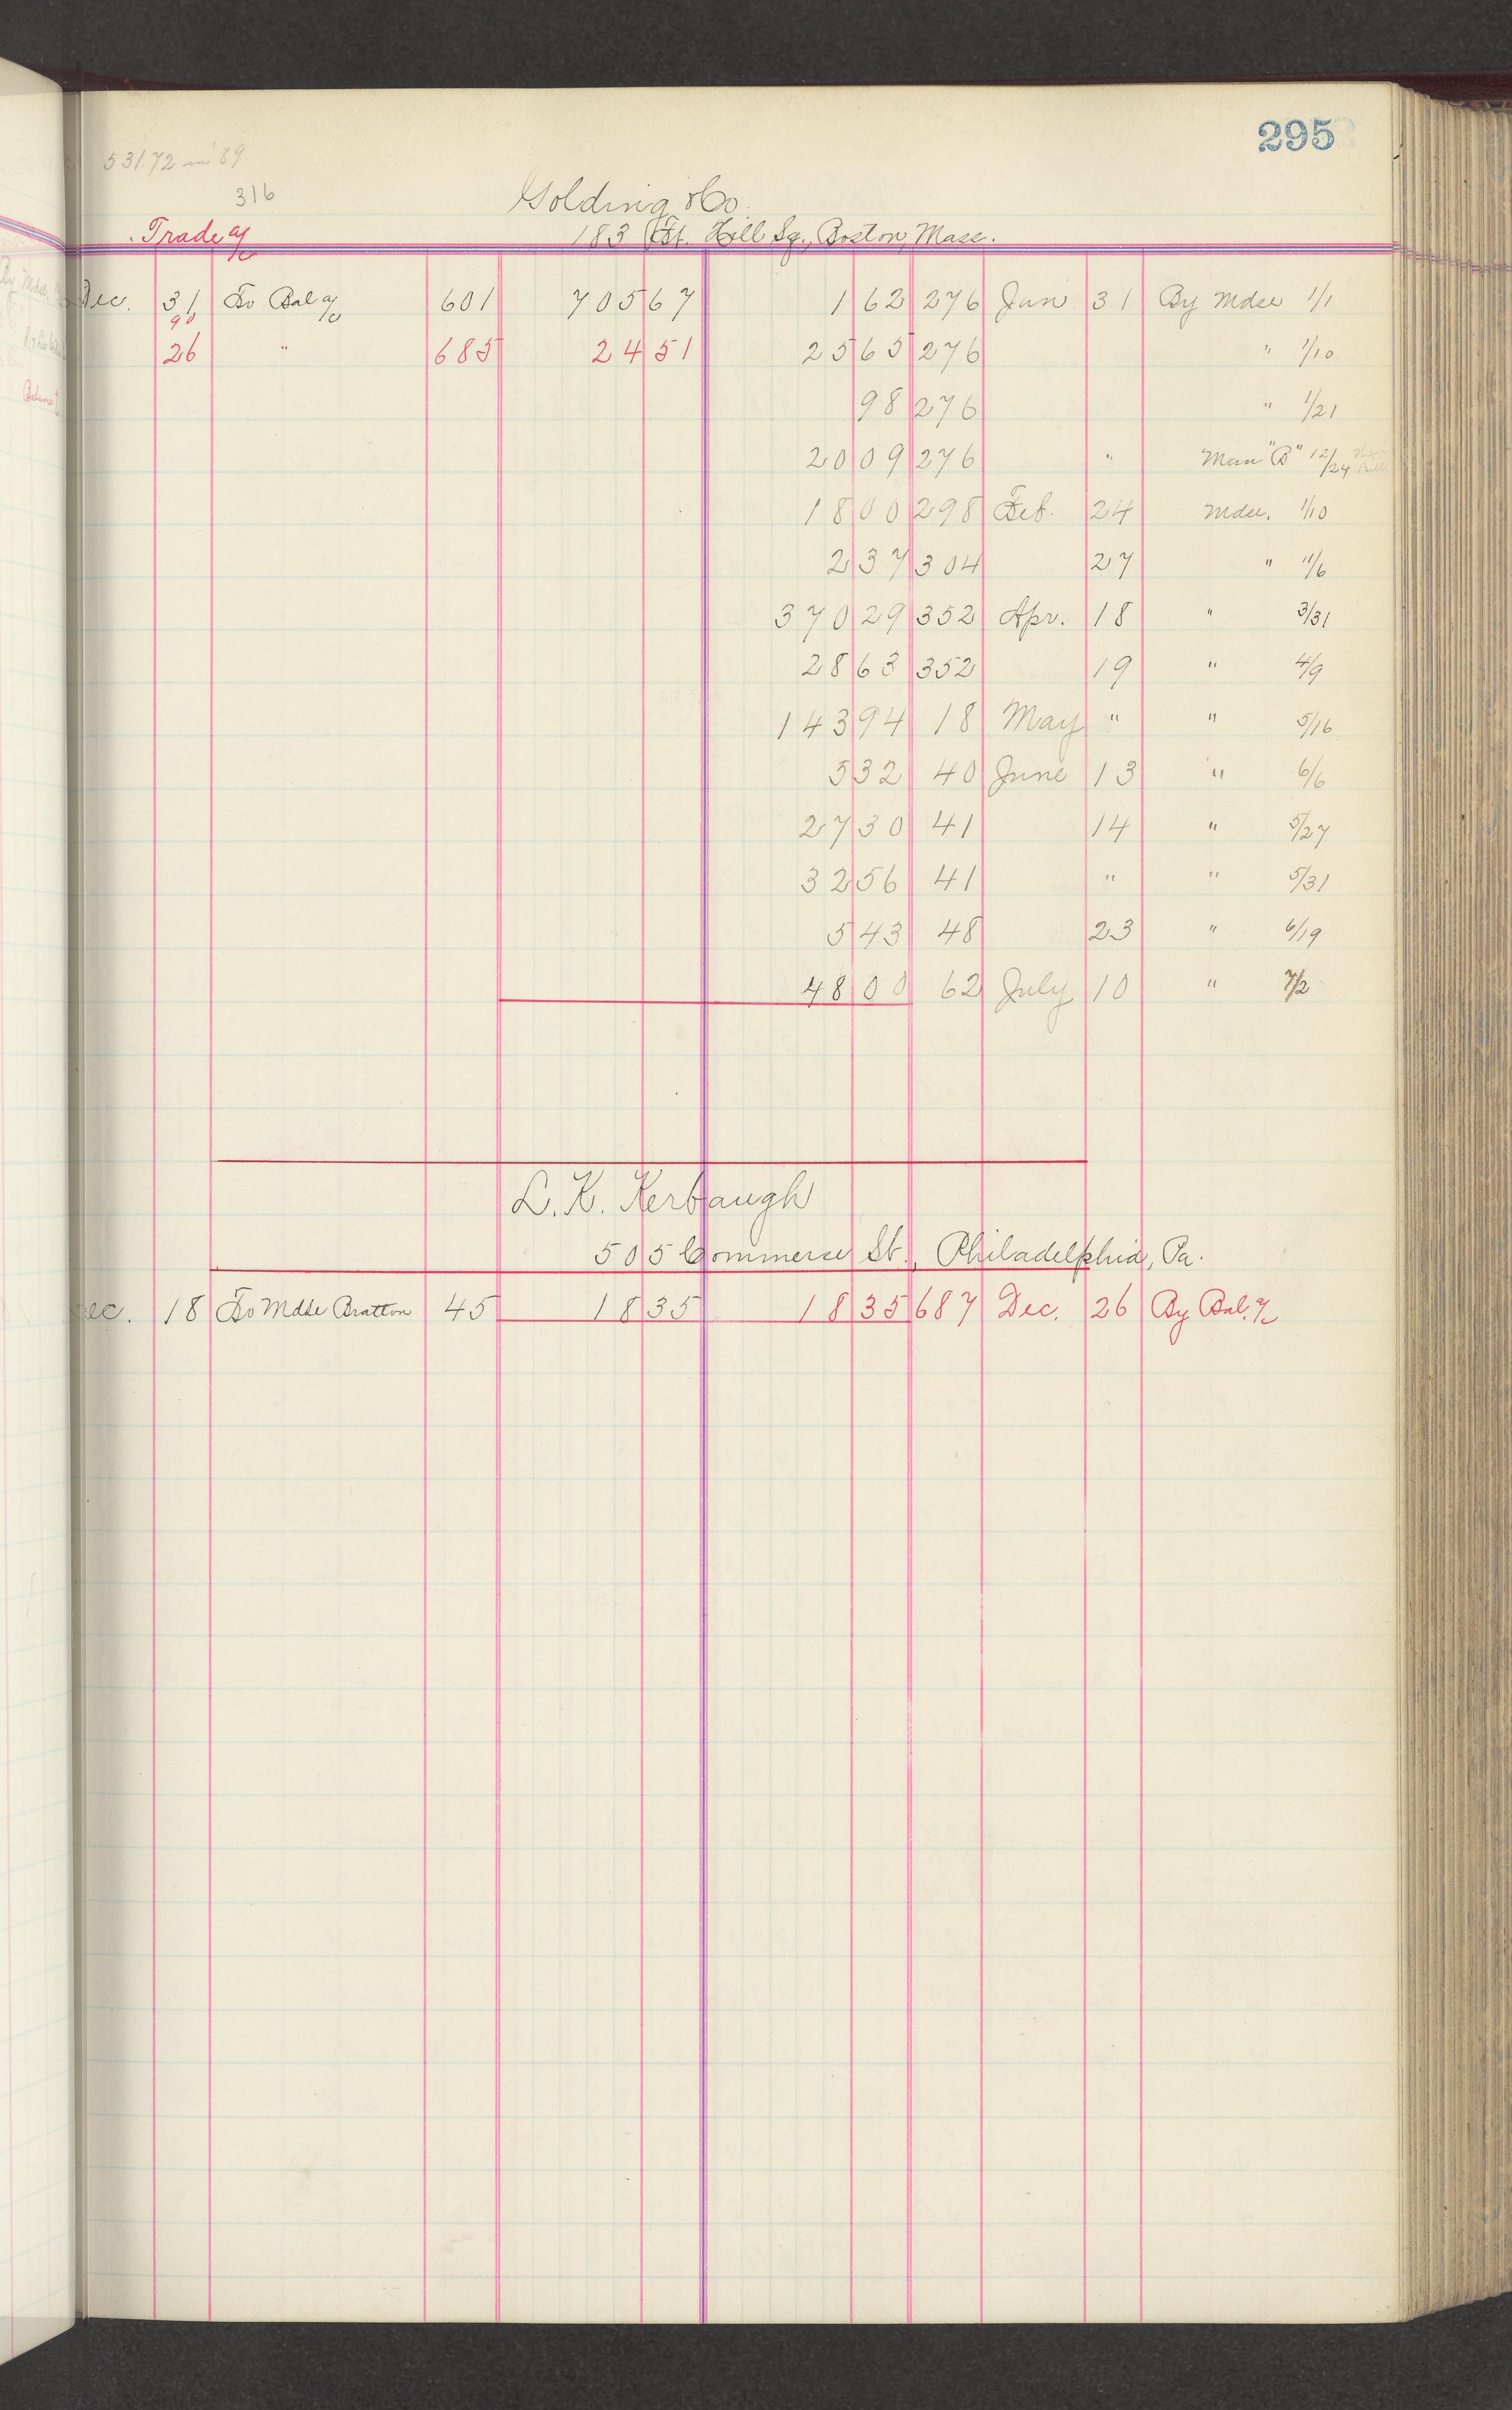 295
531.72 in '89
316
Golding & Co.
Trade a/c 183 Ft. Hill Sq., Boston, Mass.
Dec. 31 To Bal a/c 601 705 67 1 62 276 Jan 31 By Mdse 1/1
90
26 " 685 24 51 25 65 276 " 1/10
98 276 " 1/21
20 09 276 " Man "B" 12/24
18 00 298 Feb. 24 Mdse. 1/10
2 37 304 27 " 11/6
370 29 352 Apr. 18 " 3/31
28 63 352 19 " 4/9
143 94 18 May " " 5/16
5 32 40 June 13 " 6/6
27 30 41 14 " 5/27
32 56 41 " " 5/31
5 43 48 23 " 6/19
48 00 62 July 10 " 7/2
L. K. Kerbaugh
505 Commerce St., Philadelphia, Pa.
ec. 18 To Mdse Bratton 45 18 35 18 35 687 Dec. 26 By Bal. a/c
By Mdse
Balance